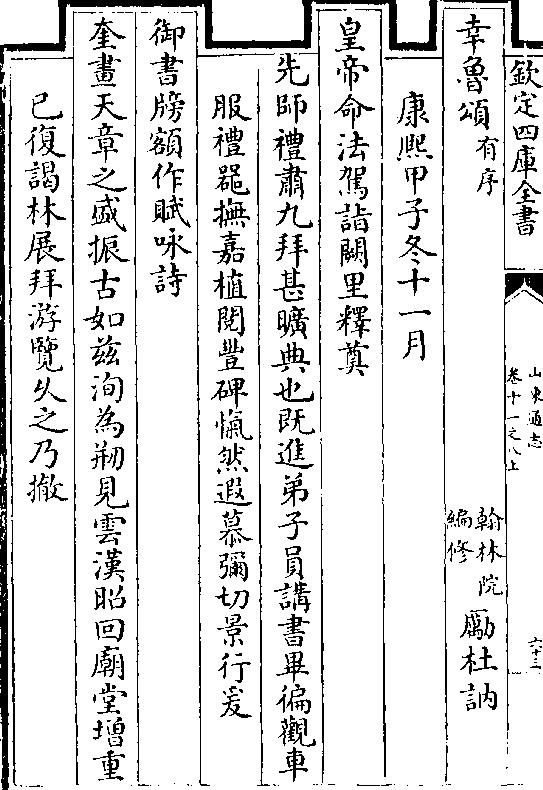 欽定四庫全書
山東通志
卷十一之八上
六十三
幸魯頌有序
翰林院編修勵杜訥
康熙甲子冬十一月
皇帝命法駕詣闕里釋奠
先師禮肅九拜甚曠典也既進弟子員講書畢徧觀車
服禮噐撫嘉植閱豐碑愾然遐慕彌切景行爰
御書牓額作賦咏詩
奎畫天章之盛振古如兹洵為刱見雲漢昭回廟堂增重
已復謁林展拜游覽久之乃撤